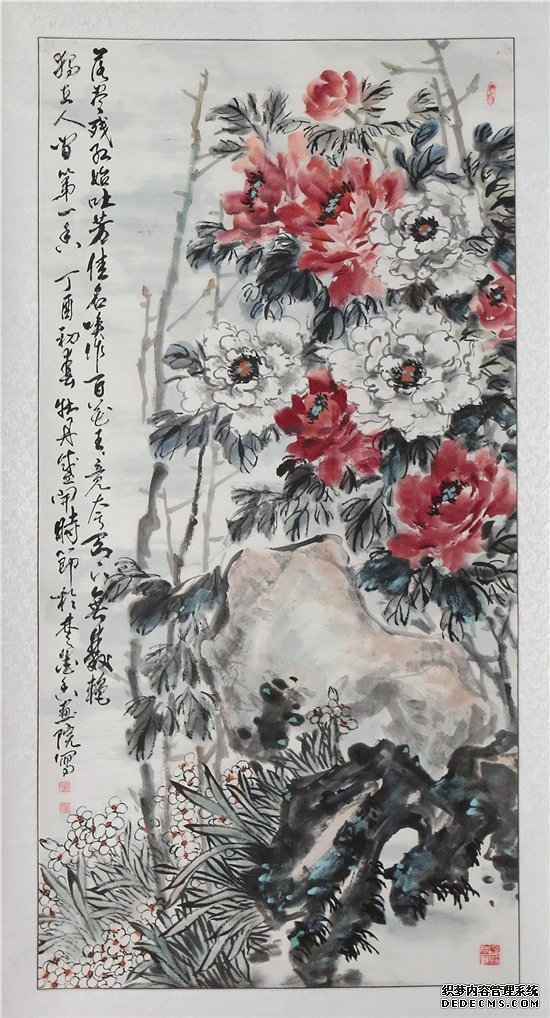 落尽残红始吐芳佳名唤作百花王竞夸天下無双艳
独立人间第一香 丁酉初春 牡丹盛开時節於墨香画院寫
织梦内容管理系统
DEDECMS.COM